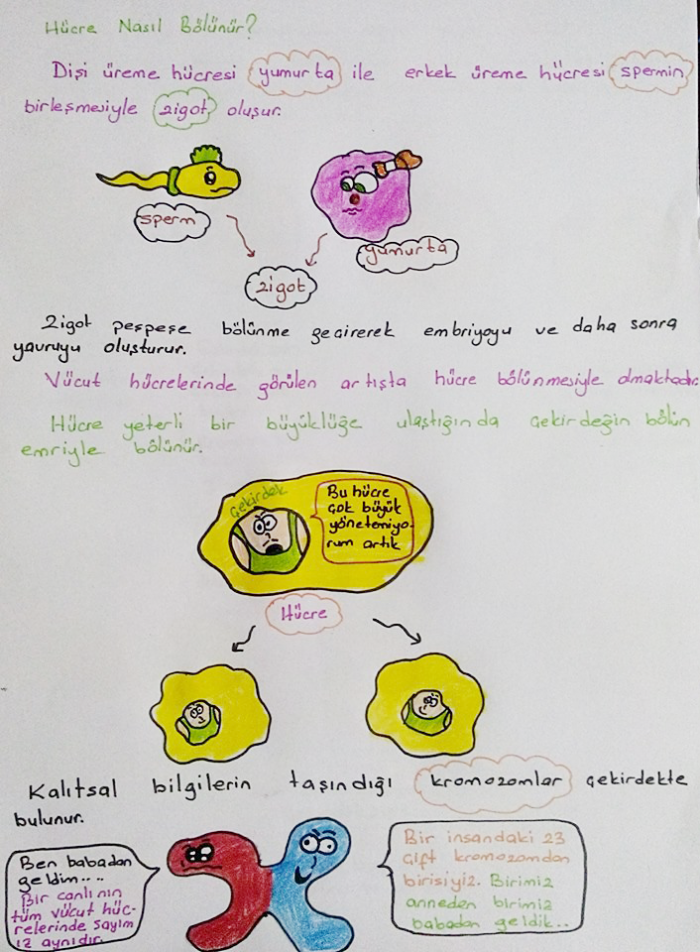 Hücre Nasıl Bölünür?
Dişi üreme hücresi yumurta ile erkek üreme hücresi spermin
birleşmesiyle zigot oluşur.
sperm
yumurta
zigot
Zigot peşpeşe bölünme geçirerek embriyoyu ve daha sonra
yavruyu oluşturur.
Vücut hücrelerinde görülen artışta hücre bölünmesiyle olmaktadır
Hücre yeterli bir büyüklüğe ulaştığında çekirdeğin bölün
emriyle bölünür.
Çekirdek
Bu hücre
çok büyük
yönetemiyo-
rum artık
Hücre
Kalıtsal bilgilerin taşındığı kromozomlar çekirdekte
bulunur.
Ben babadan
geldim....
Bir canlının
tüm vücut hüc-
relerinde sayım
ız aynıdır
Bir insandaki 23
çift kromozomdan
birisiyiz. Birimiz
anneden birimiz
babadan geldik..